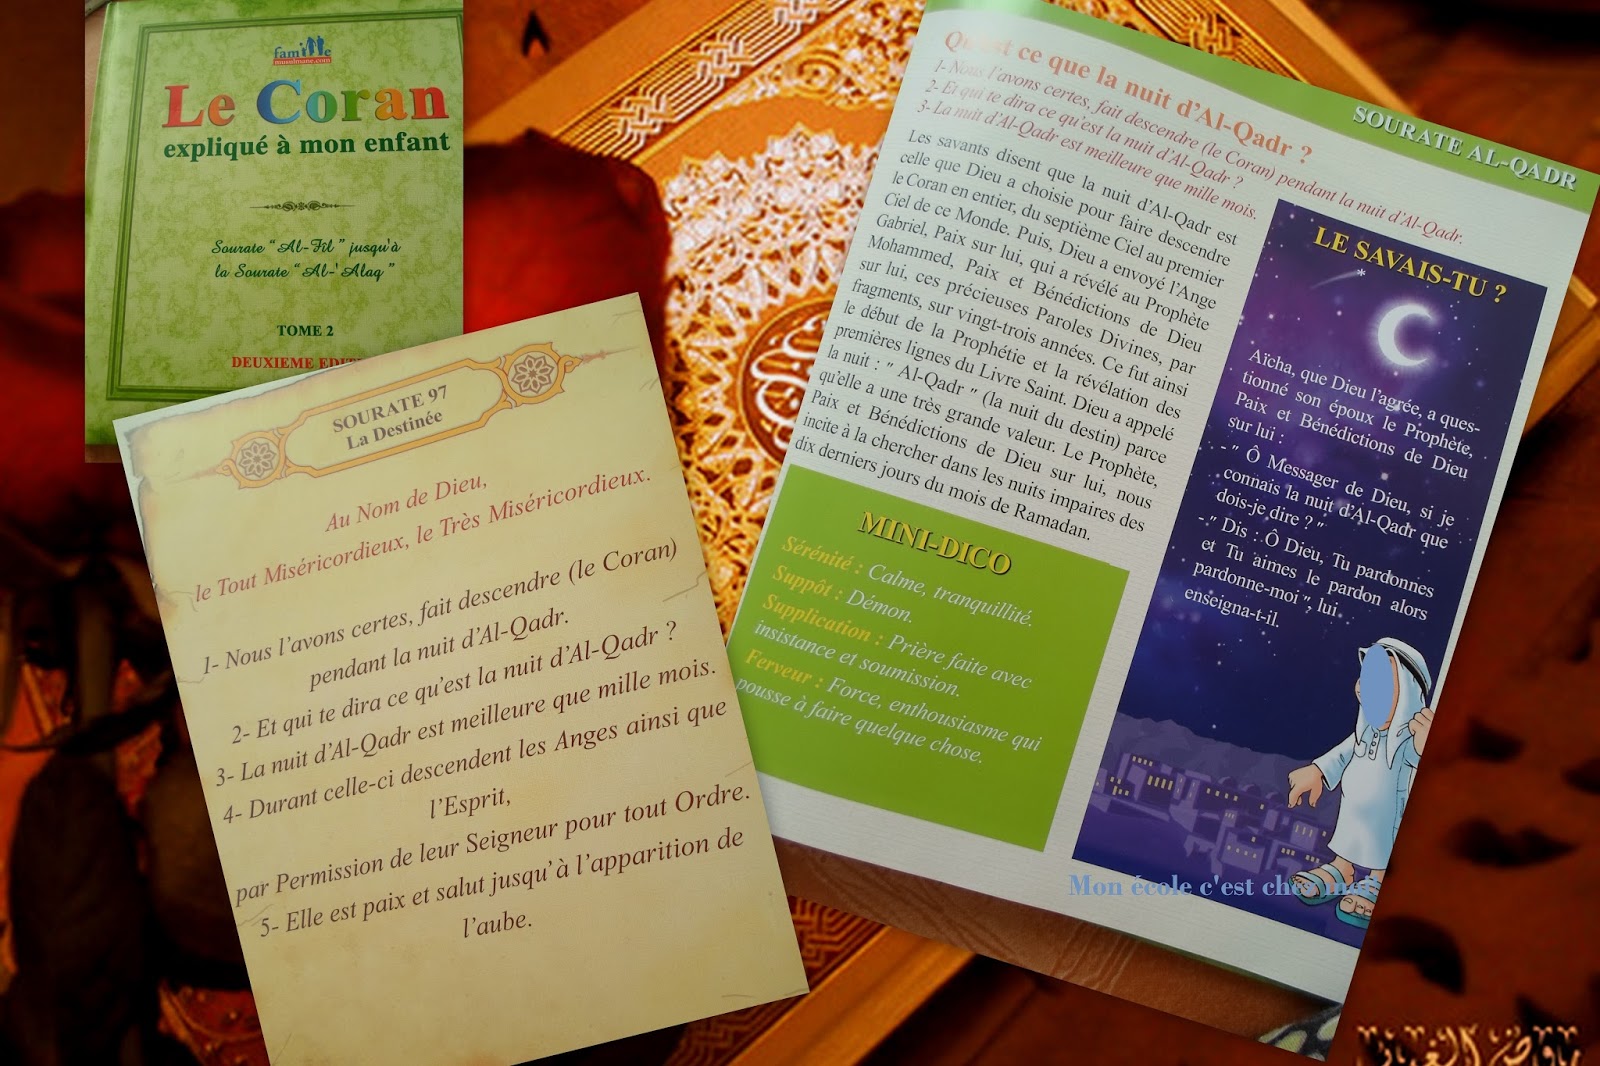 famille
musulmane.com
Le Coran
expliqué à mon enfant
Sourate “Al-Fîl” jusqu'à
la Sourate “Al-'Alaq”
TOME 2
DEUXIEME EDIT
SOURATE 97
La Destinée
Au Nom de Dieu,
le Tout Miséricordieux, le Très Miséricordieux.
1- Nous l'avons certes, fait descendre (le Coran)
pendant la nuit d'Al-Qadr.
2- Et qui te dira ce qu'est la nuit d'Al-Qadr ?
3- La nuit d'Al-Qadr est meilleure que mille mois.
4- Durant celle-ci descendent les Anges ainsi que
l'Esprit,
par Permission de leur Seigneur pour tout Ordre.
5- Elle est paix et salut jusqu'à l'apparition de
l'aube.
SOURATE AL-QADR
Qu'est ce que la nuit d'Al-Qadr ?
1- Nous l'avons certes, fait descendre (le Coran) pendant la nuit d'Al-Qadr.
2- Et qui te dira ce qu'est la nuit d'Al-Qadr ?
3- La nuit d'Al-Qadr est meilleure que mille mois.
Les savants disent que la nuit d'Al-Qadr est
celle que Dieu a choisie pour faire descendre
le Coran en entier, du septième Ciel au premier
Ciel de ce Monde. Puis, Dieu a envoyé l'Ange
Gabriel, Paix sur lui, qui a révélé au Prophète
Mohammed, Paix et Bénédictions de Dieu
sur lui, ces précieuses Paroles Divines, par
fragments, sur vingt-trois années. Ce fut ainsi
le début de la Prophétie et la révélation des
premières lignes du Livre Saint. Dieu a appelé
la nuit : " Al-Qadr " (la nuit du destin) parce
qu'elle a une très grande valeur. Le Prophète,
Paix et Bénédictions de Dieu sur lui, nous
incite à la chercher dans les nuits impaires des
dix derniers jours du mois de Ramadan.
MINI-DICO
Sérénité : Calme, tranquillité.
Suppôt : Démon.
Supplication : Prière faite avec
insistance et soumission.
Ferveur : Force, enthousiasme qui
pousse à faire quelque chose.
LE SAVAIS-TU ?
Aïcha, que Dieu l'agrée, a ques-
tionné son époux le Prophète,
Paix et Bénédictions de Dieu
sur lui :
- " Ô Messager de Dieu, si je
connais la nuit d'Al-Qadr que
dois-je dire ? "
- " Dis : Ô Dieu, Tu pardonnes
et Tu aimes le pardon alors
pardonne-moi ", lui
enseigna-t-il.
Mon école c'est chez moi!